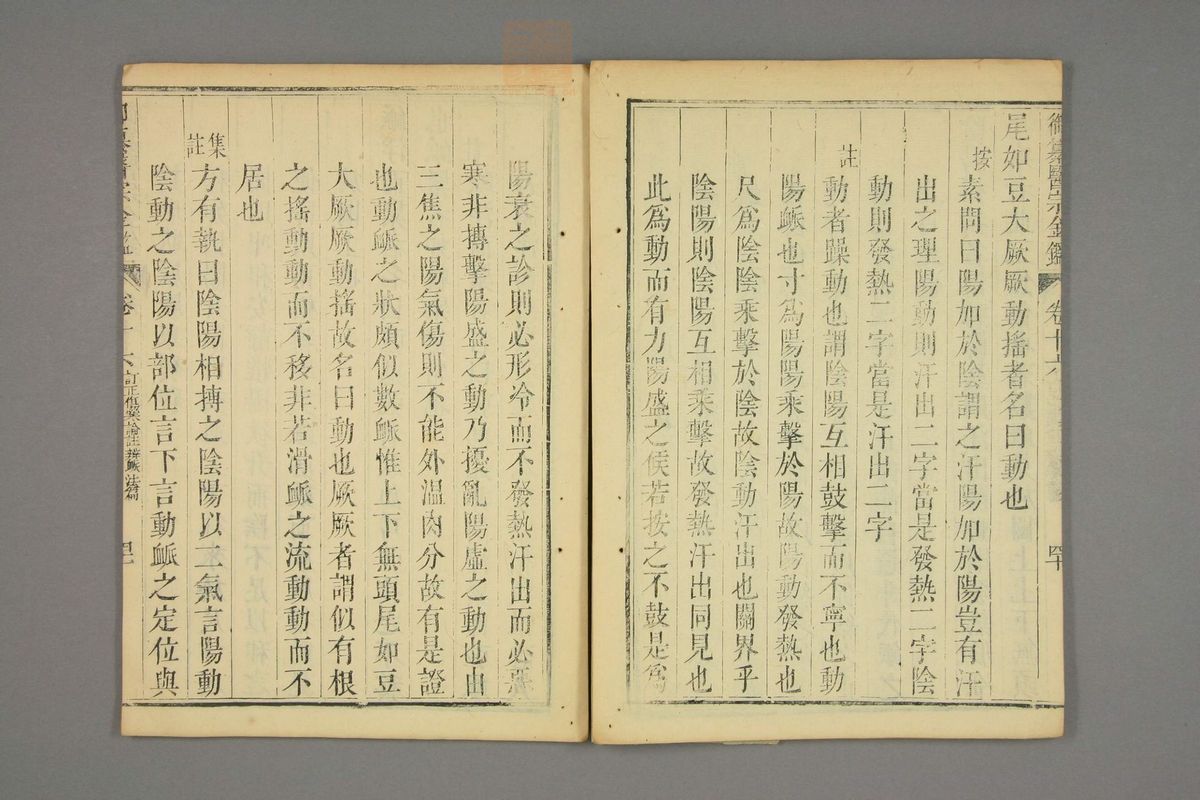 御纂醫宗金鑑 卷十六 四十
尾如豆大厥厥動搖者名曰動也
按
素問曰陽加於陰謂之汗陽加於陽豈有汗
出之理陽動則汗出二字當是發熱二字陰
動則發熱二字當是汗出二字
註
動者躁動也謂陰陽互相鼓擊而不寧也動
陽脈也寸為陽陽乘擊於陽故陽動發熱也
尺為陰陰乘擊於陰故陰動汗出也關界乎
陰陽則陰陽互相乘擊故發熱汗出同見也
此為動而有力陽盛之候若按之不鼓是為
陽衰之診則必形冷而不發熱汗出而必惡
寒非搏擊陽盛之動乃擾亂陽虛之動也由
三焦之陽氣傷則不能外溫肉分故有是證
也動脈之狀頗似數脈惟上下無頭尾如豆
大厥厥動搖故名曰動也厥厥者謂似有根
之搖動動而不移非若滑脈之流動動而不
居也
集註
方有執曰陰陽相搏之陰陽以二氣言陽動
陰動之陰陽以部位言下言動脈之定位與
卷十六 訂正傷寒論註辨脈法篇